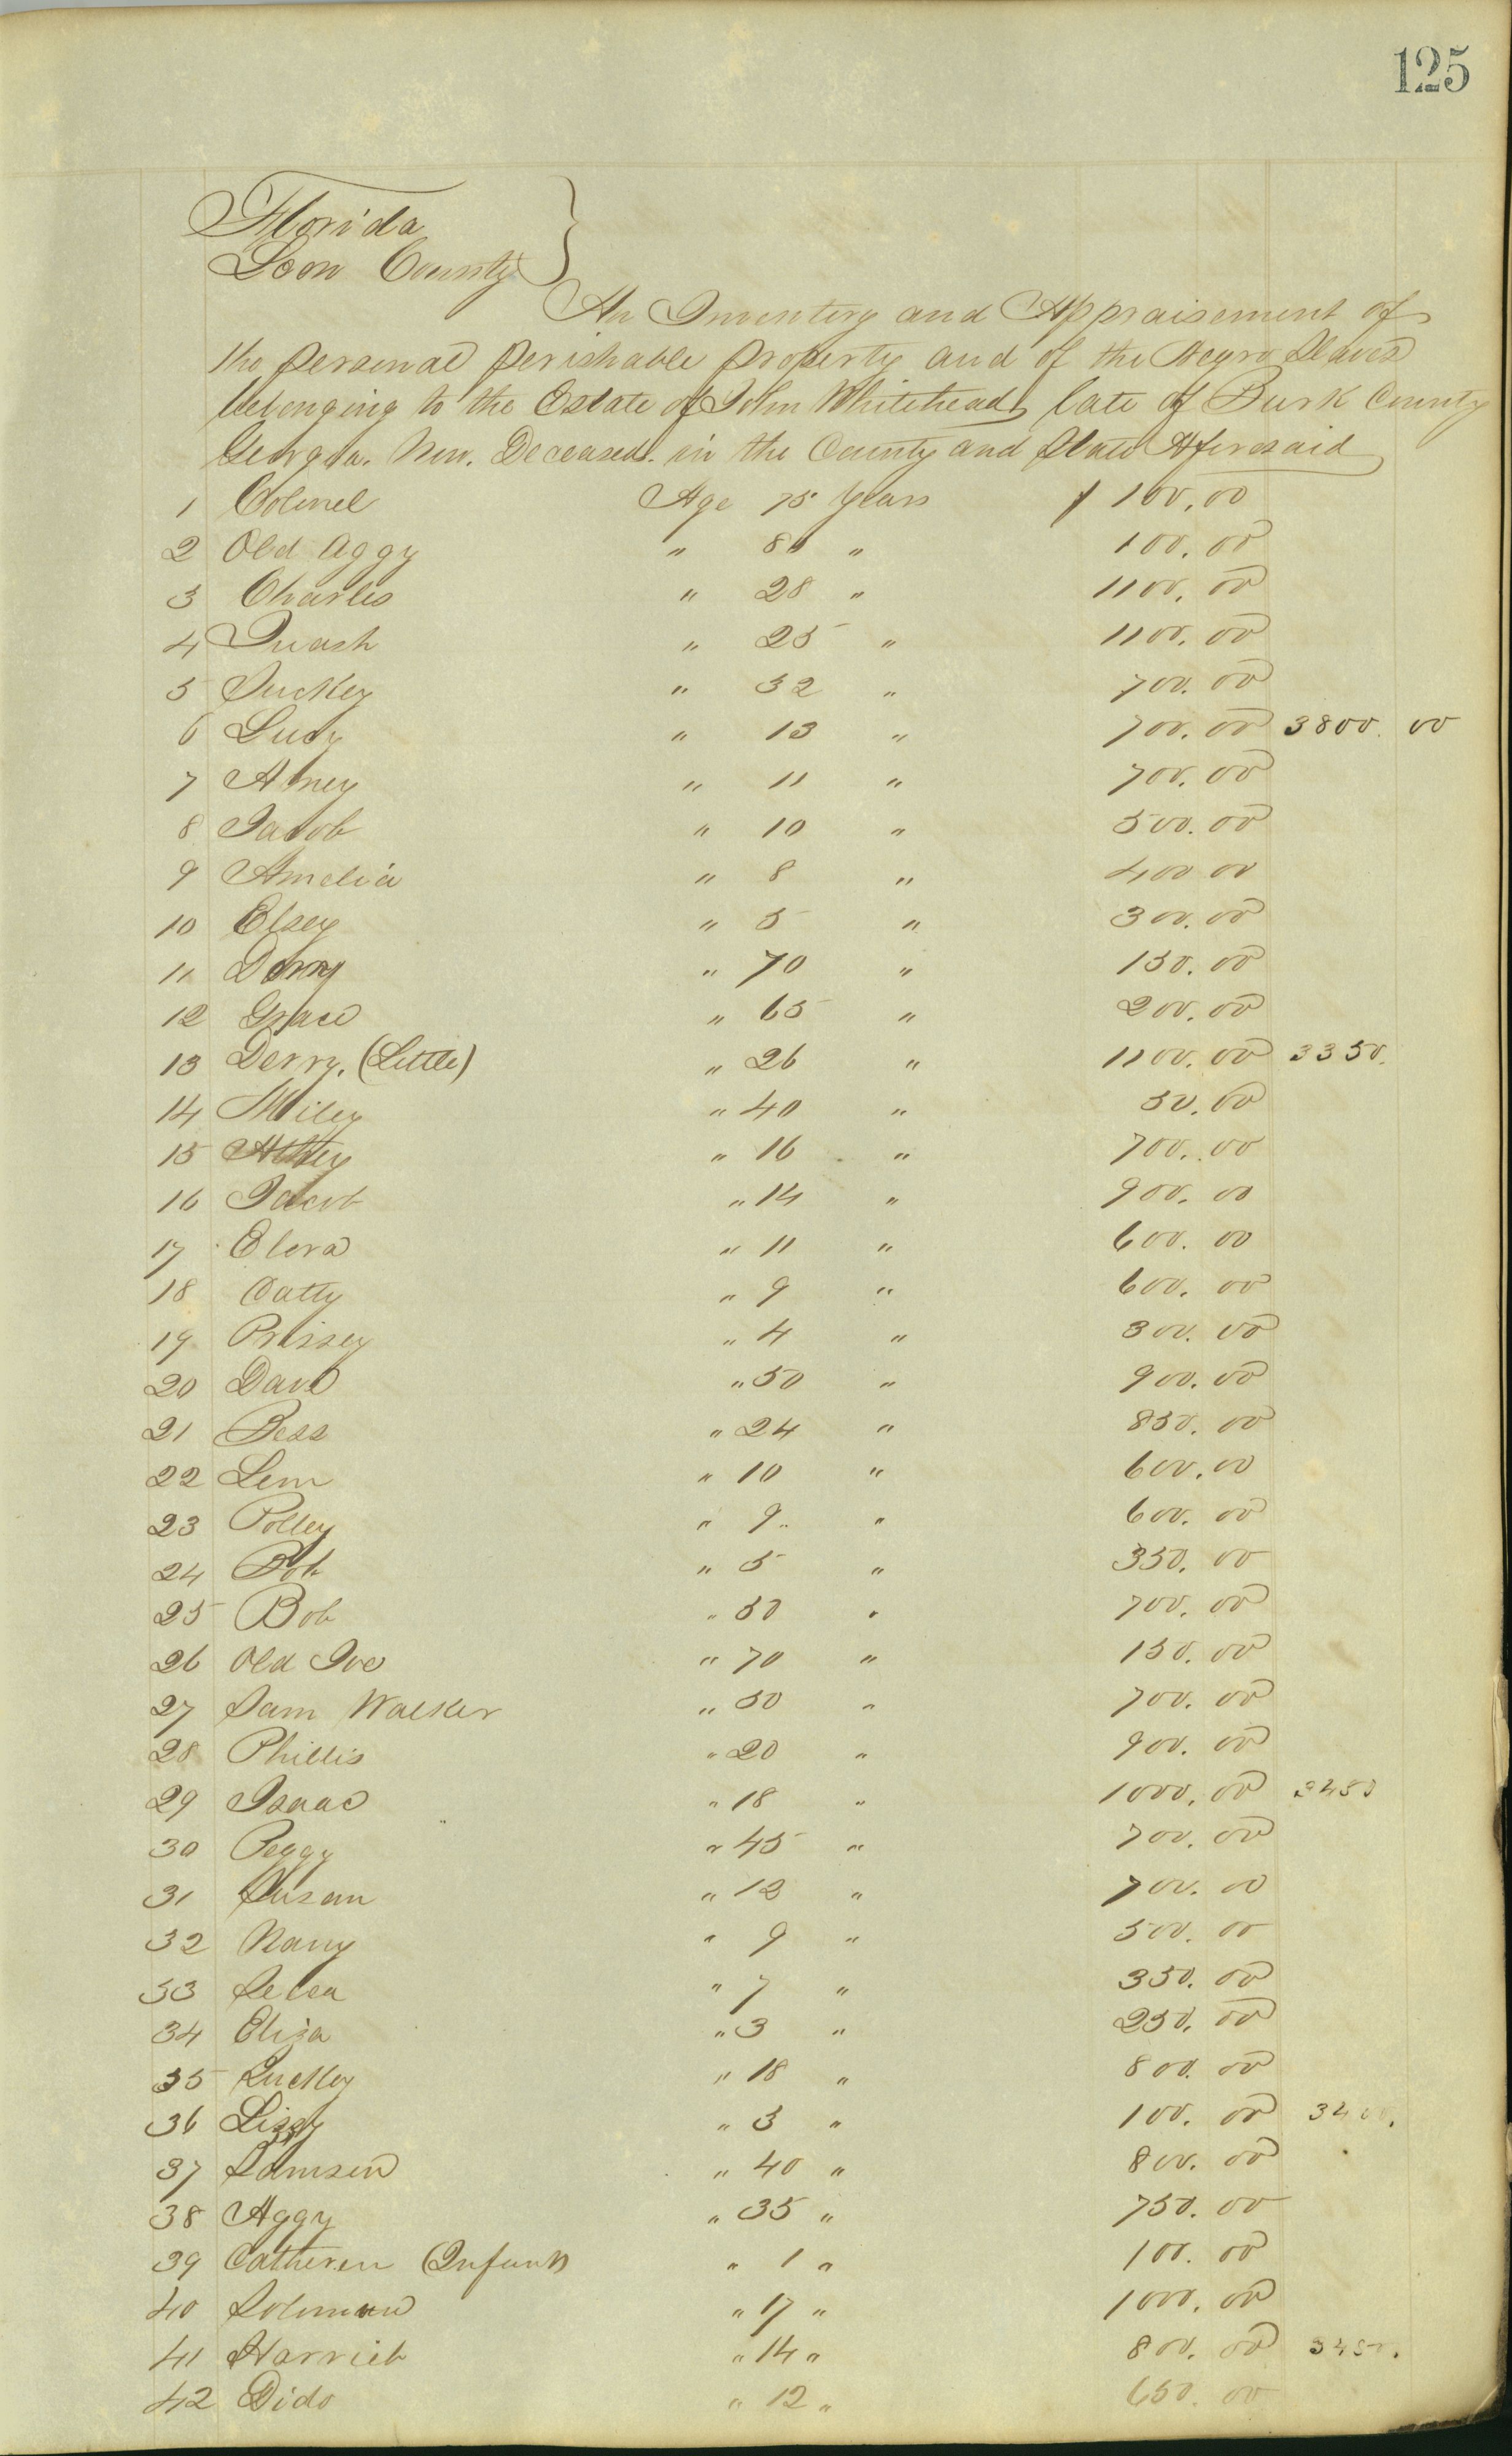 125
Florida
Leon County }
An Inventory and Appraisement of
the personal perishable property and of the Negro Slaves
belonging to the Estate of John Whitehead, late of Burk County
Georgia. Now. Deceased. in the County and State Aforesaid
1 Colonel Age 75 Years $ 100.00
2 Old Aggy " 80 " 100.00
3 Charles " 28 " 1100.00
4 Quash " 25 " 1100.00
5 Suckey " 32 " 700.00
6 Lucy " 13 " 700.00 3800.00
7 " 11 " 700.00
8 Jacob " 10 " 500.00
9 Amelia " 8 " 400 00
10 Elsey " 5 " 300.00
11 Derry " 70 " 150.00
12 Grace " 65 " 200.00
13 Derry, (Little) " 26 " 1100.00 3350.
14 Miley " 40 " 50.00
15 " 16 " 700.00
16 Jacob " 14 " 900.00
17 Elora " 11 " 600.00
18 Catty " 9 " 600.00
19 Prissey " 4 " 300.00
20 Dave " 50 " 900.00
21 Bess " 24 " 850.00
22 Lem " 10 " 600.00
23 Polley " 9 " 600.00
24 Bob " 5 " 350.00
25 Bob " 50 " 700.00
26 Old Joe " 70 " 150.00
27 Sam Walker " 50 " 700.00
28 Phillis " 20 " 900.00
29 Isaac " 18 " 1000.00 3450
30 Peggy " 45 " 700.00
31 Susan " 12 " 700.00
32 Nancy " 9 " 500.00
33 " 7 " 350.00
34 Eliza " 3 " 250.00
35 Suckey " 18 " 800.00
36 Lizzy " 3 " 100.00 3400.
37 Samson " 40 " 800.00
38 Aggy " 35 " 750.00
39 Catheren (Infant) " 1 " 100.00
40 Soloman " 17 " 1000.00
41 Harriet " 14 " 800.00 3450.
42 Dido " 12 " 650.00